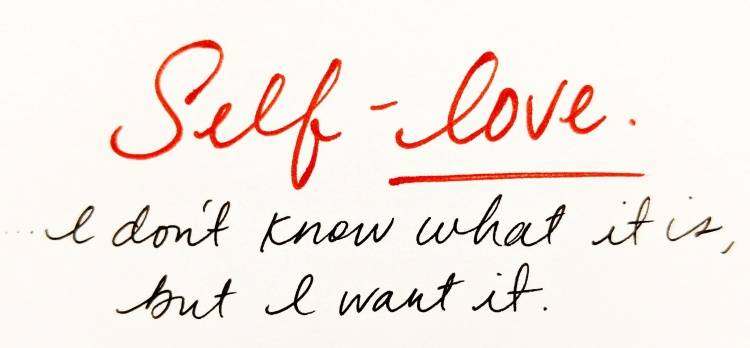 Self-love.
...I don't know what it is,
but I want it.